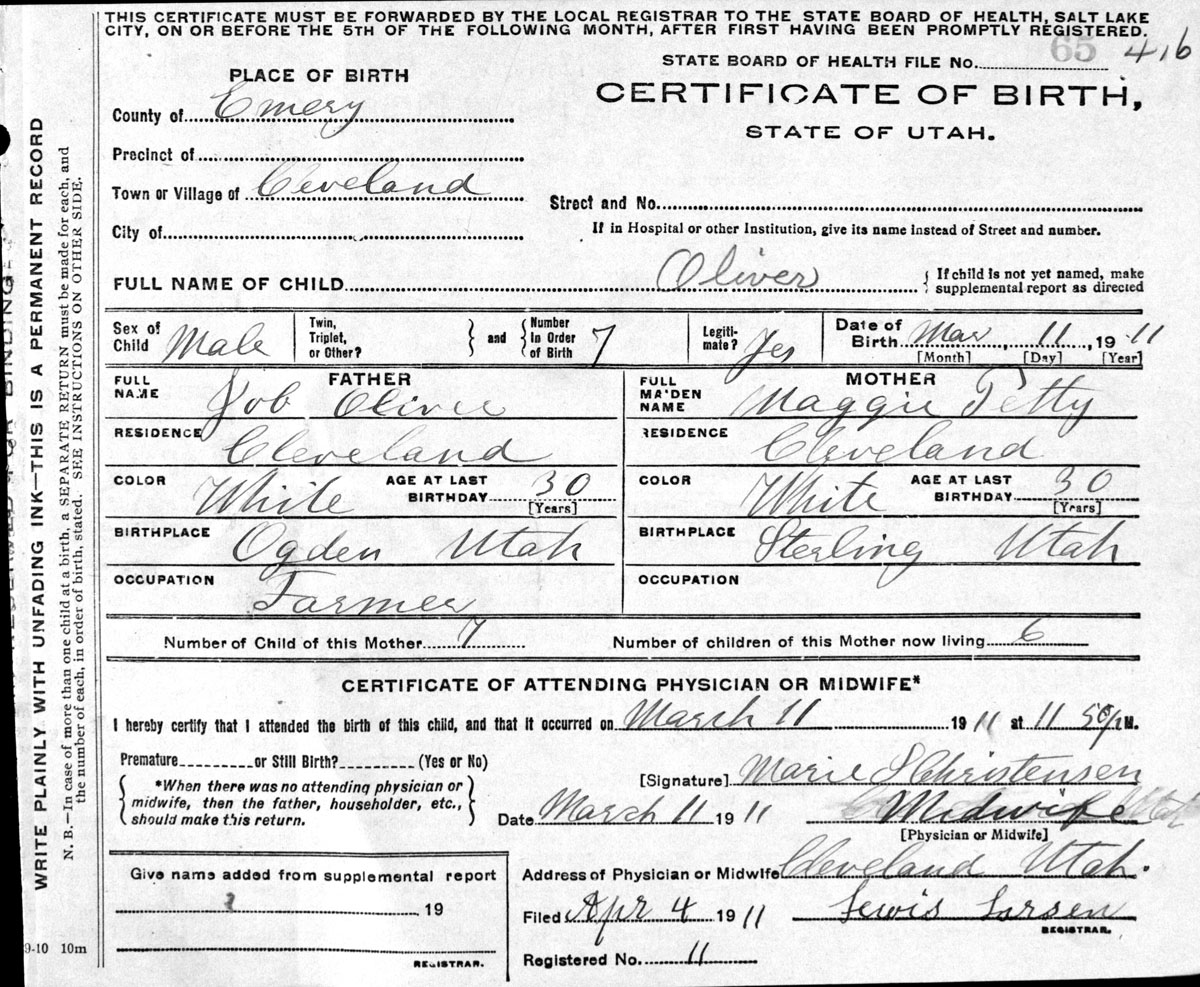 THIS CERTIFICATE MUST BE FORWARDED BY THE LOCAL REGISTRAR TO THE STATE BOARD OF HEALTH, SALT LAKE
CITY, ON OR BEFORE THE 5TH OF THE FOLLOWING MONTH, AFTER FIRST HAVING BEEN PROMPTLY REGISTERED.
65 416
STATE BOARD OF HEALTH FILE No.
CERTIFICATE OF BIRTH,
STATE OF UTAH.
PLACE OF BIRTH
County of Emery
Precinct of
Town or Village of Cleveland
Street and No.
City of
If in Hospital or other Institution, give its name instead of Street and number.
FULL NAME OF CHILD Oliver
{ If child is not yet named, make
supplemental report as directed
Sex of Child Male
Twin, Triplet, or Other? } and { Number In Order of Birth 7
Legiti- mate? Yes
Date of Birth Mar, 11, 1911
[Month] [Day] [Year]
FATHER
FULL NAME Job Oliver
RESIDENCE Cleveland
COLOR White AGE AT LAST BIRTHDAY 30
[Years]
BIRTHPLACE Ogden Utah
OCCUPATION Farmer
MOTHER
FULL MAIDEN NAME Maggie Petty
RESIDENCE Cleveland
COLOR White AGE AT LAST BIRTHDAY 30
[Years]
BIRTHPLACE Sterling Utah
OCCUPATION
Number of Child of this Mother 7 Number of children of this Mother now living 6
CERTIFICATE OF ATTENDING PHYSICIAN OR MIDWIFE*
I hereby certify that I attended the birth of this child, and that it occurred on March 11 1911 at 11 50 p M.
Premature or Still Birth? (Yes or No)
*When there was no attending physician or
midwife, then the father, householder, etc.,
should make this return.
[Signature] Marie S Christensen
Date March 11 1911 Midwife
[Physician or Midwife]
Give name added from supplemental report
19
REGISTRAR.
Address of Physician or Midwife Cleveland Utah.
Filed Apr 4 1911 Lewis Larsen
REGISTRAR.
Registered No. 11
WRITE PLAINLY WITH UNFADING INK—THIS IS A PERMANENT RECORD
N. B.—In case of more than one child at a birth, a SEPARATE RETURN must be made for each, and
the number of each, in order of birth, stated. SEE INSTRUCTIONS ON OTHER SIDE.
9-10 10m